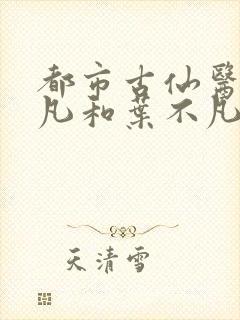 都市古仙醫
凡和葉不凡
天清雪